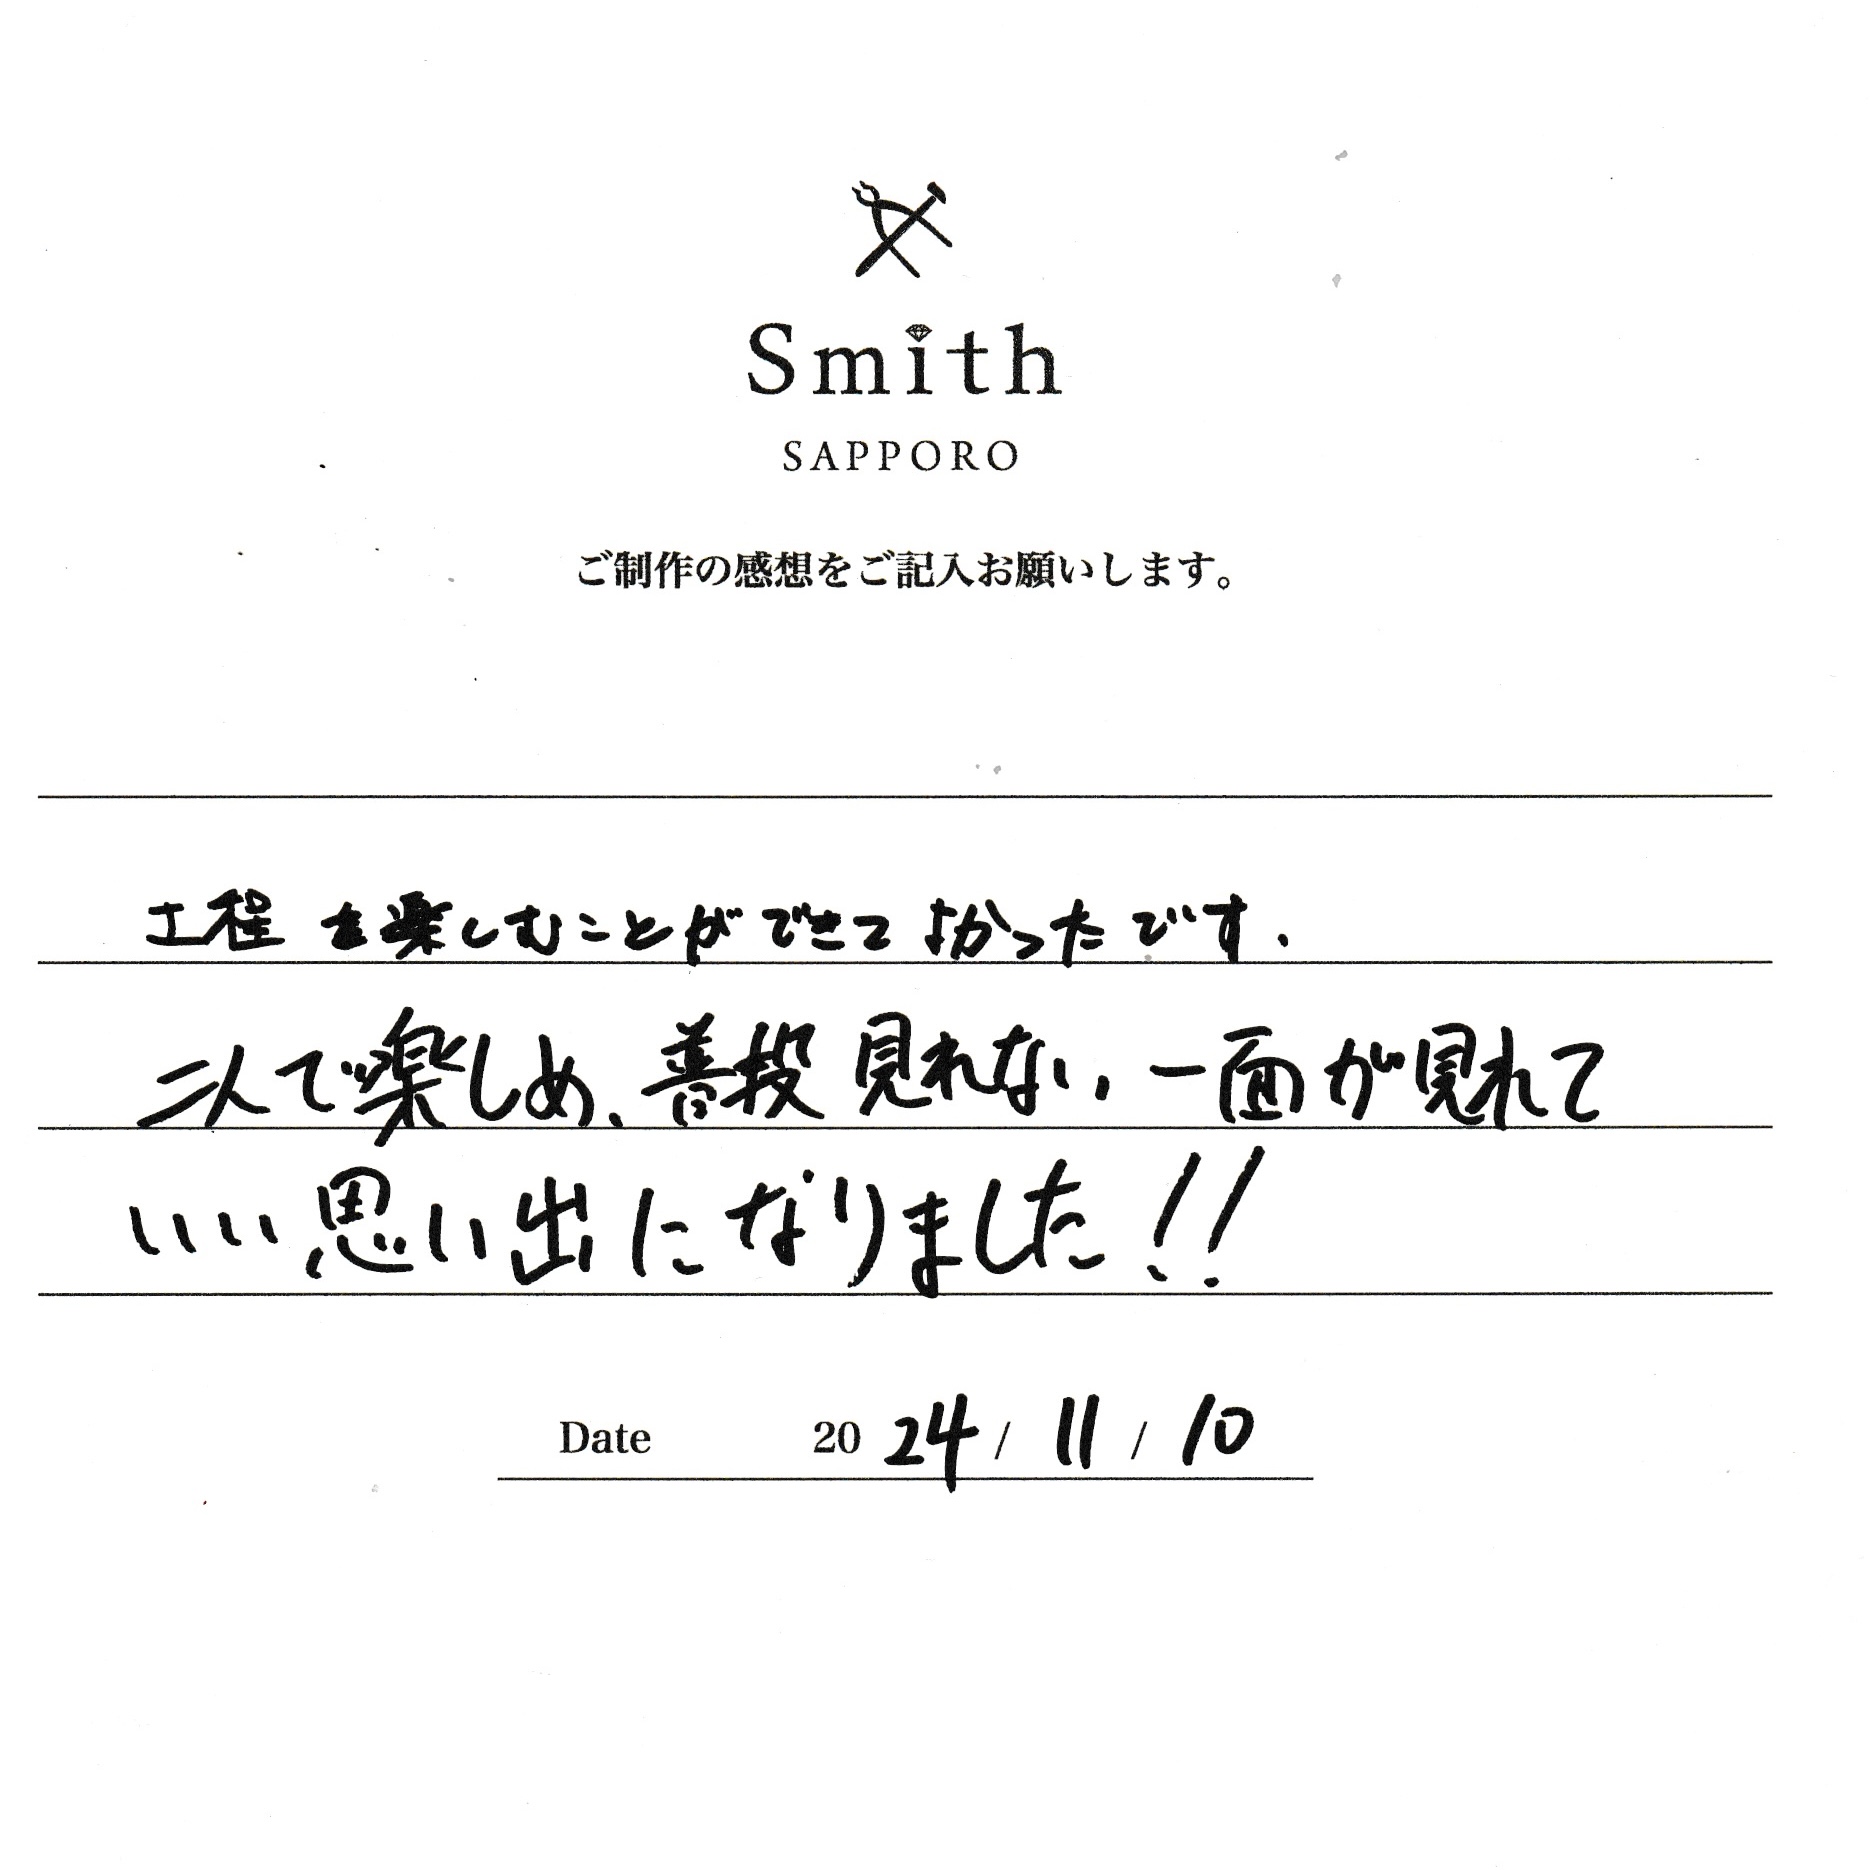 Smith
SAPPORO
ご制作の感想をご記入お願いします。
工程を楽しむことができてよかったです.
二人で楽しめ、普段見れない一面が見れて
いい思い出になりました!!
Date 2024 / 11 / 10